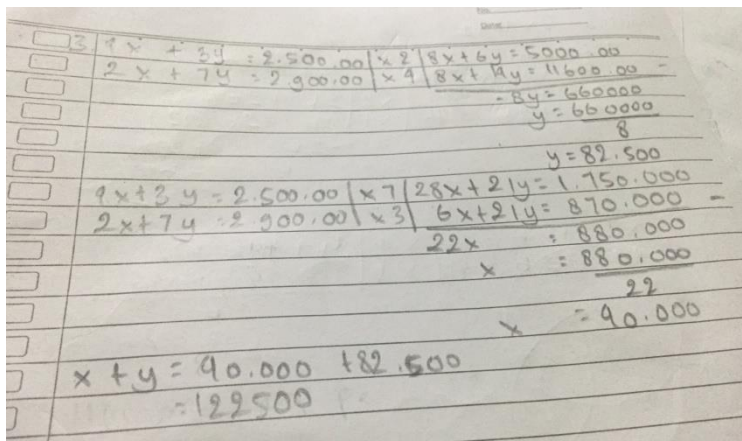 3. 4x + 3y = 2.500.00 | x 2 | 8x + 6y = 5000.00
2x + 7y = 2900.00 | x 4 | 8x + 14y = 11600.00 -
- 8y = 660000
y = 660000
8
y = 82.500
4x + 3y = 2.500.00 | x 7 | 28x + 21y = 1.750.000
2x + 7y = 2.900.00 | x 3 | 6x + 21y = 870.000 -
22x = 880.000
x = 880.000
22
x = 40.000
x + y = 40.000 + 82.500
= 122500